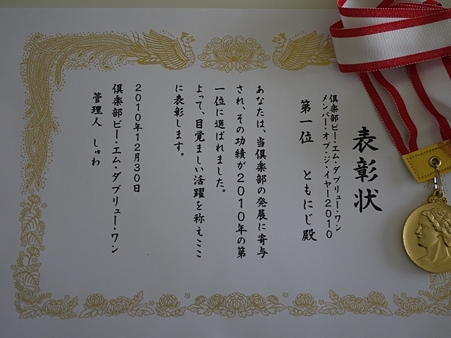 表彰状
倶楽部ビー・エム・ダブリュー・ワン
メンバー・オブ・ジ・イヤー2010
第一位 ともにじ殿
あなたは、当倶楽部の発展に寄与
され、その功績が2010年の第
一位に選ばれました。
よって、目覚ましい活躍を称えここ
に表彰します。
2010年12月30日
倶楽部ビー・エム・ダブリュー・ワン
管理人 しゅわ